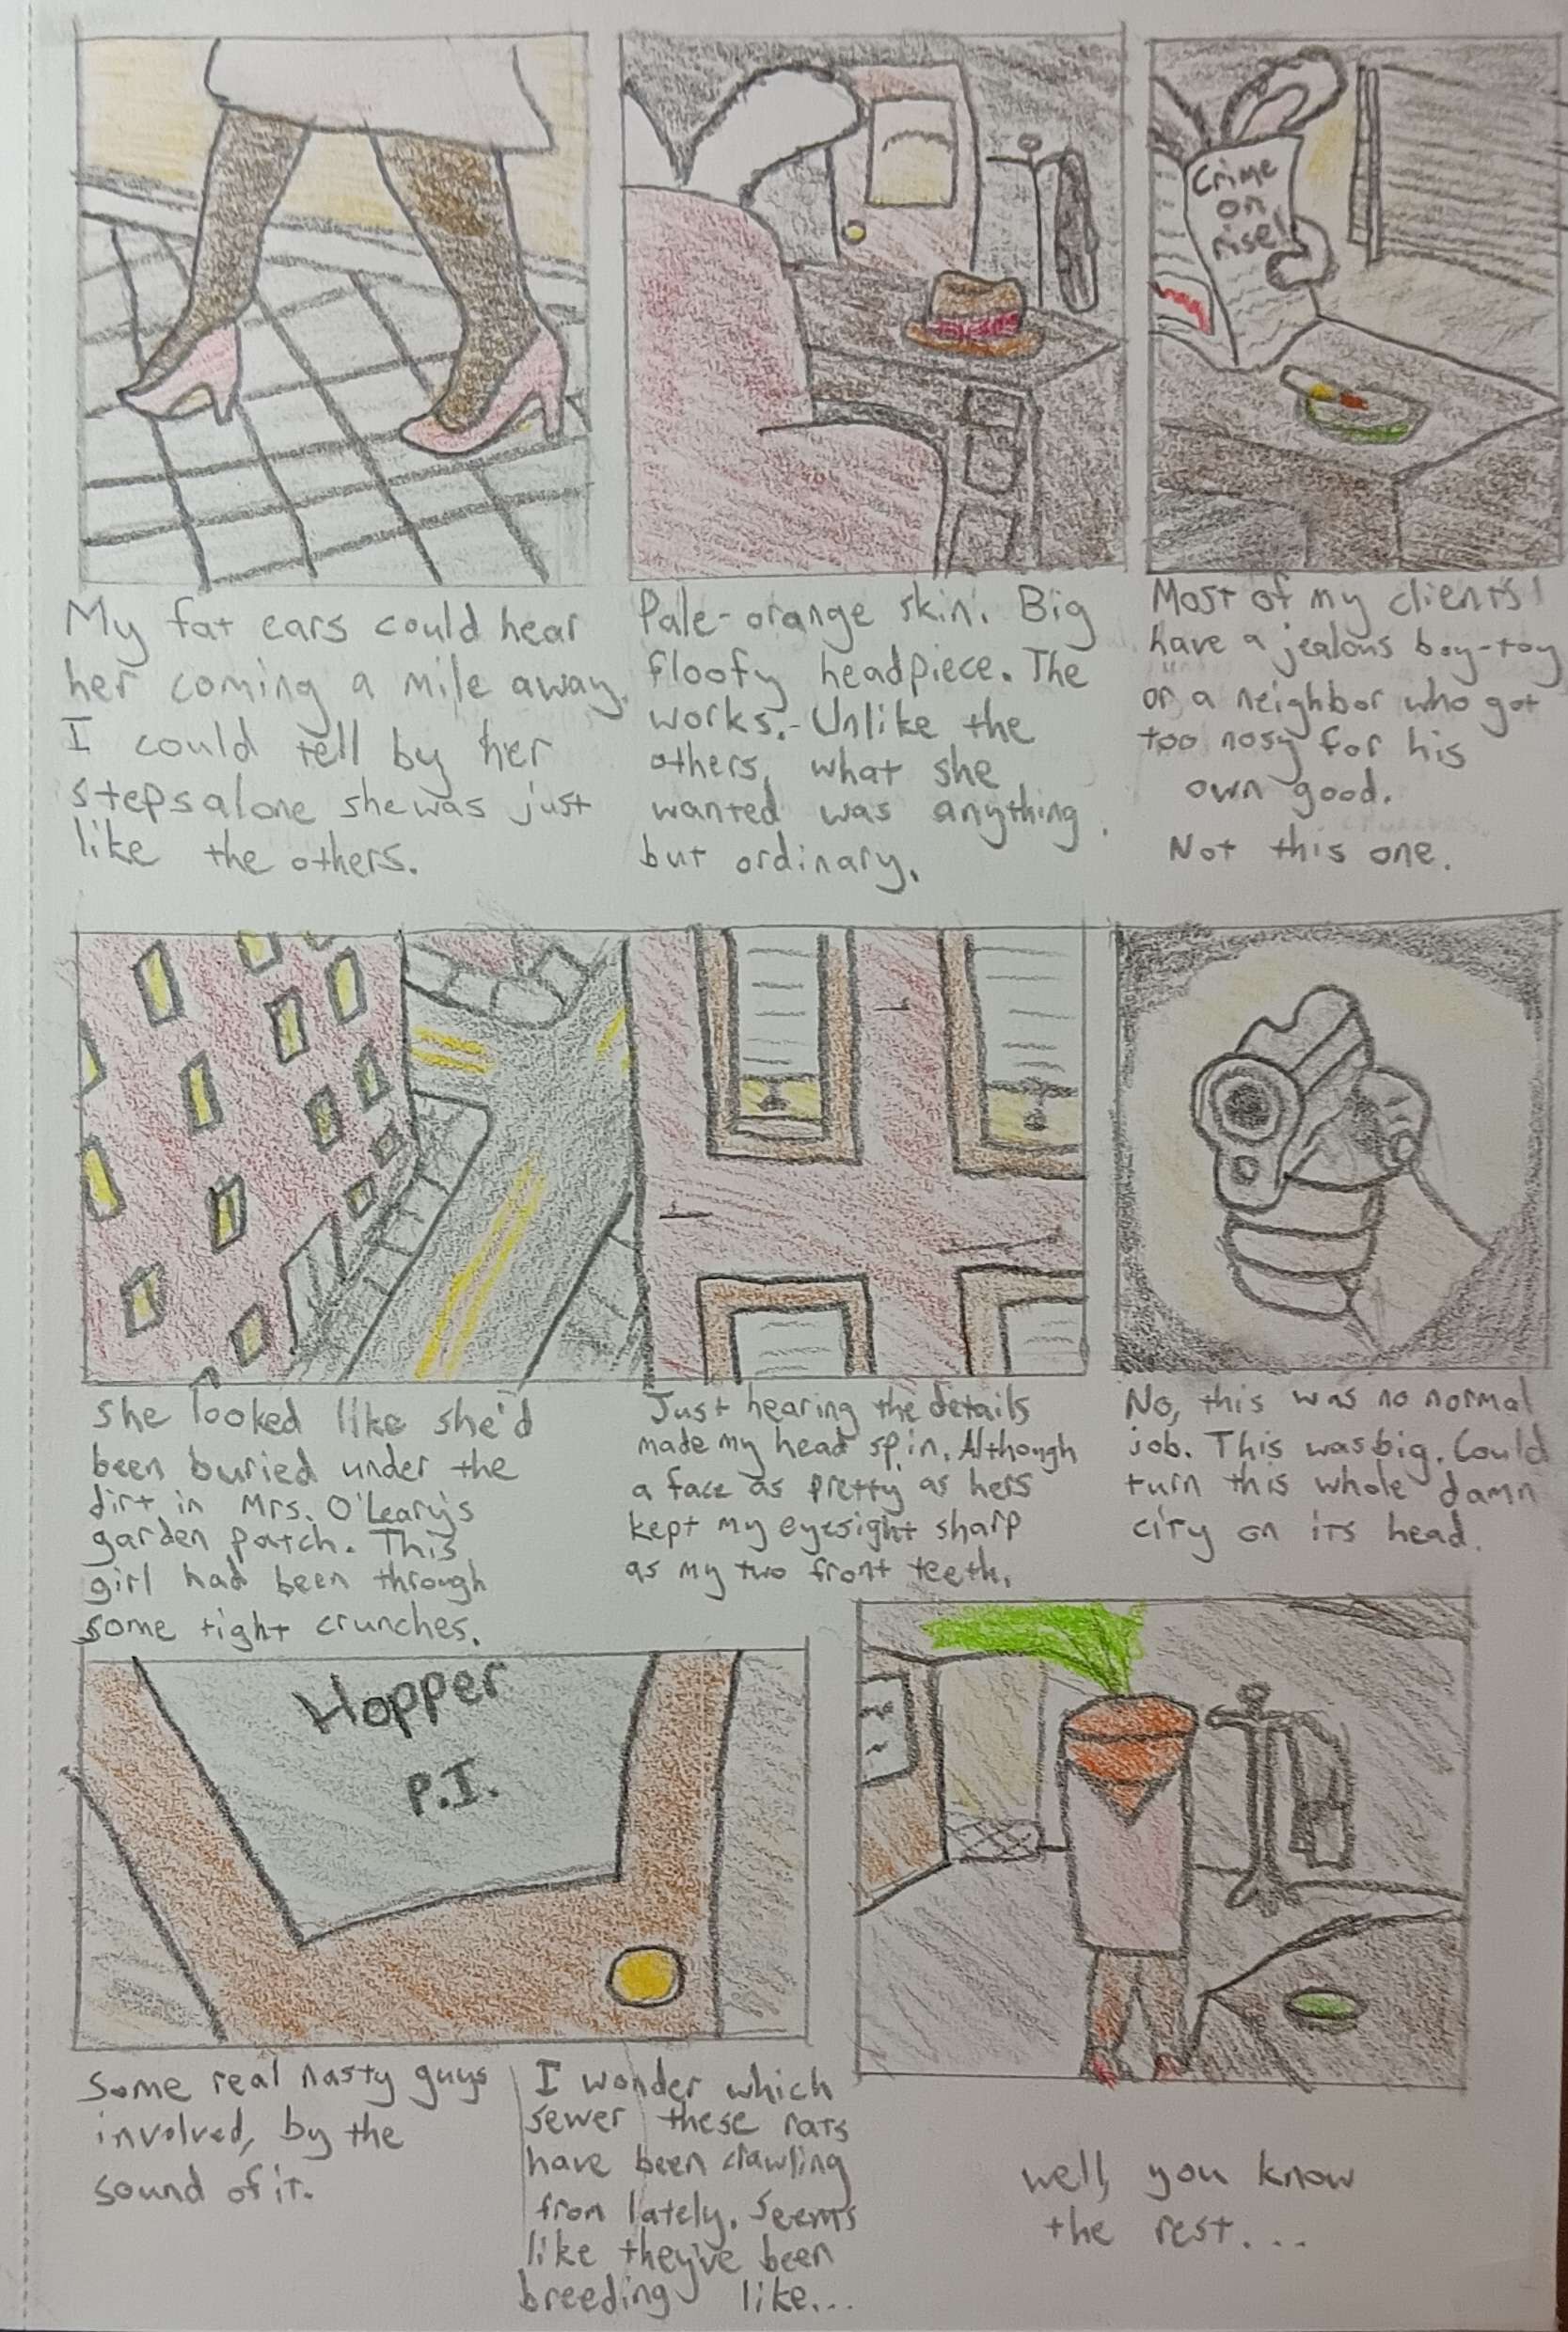 Crime
on
rise!
My fat ears could hear
her coming a mile away.
I could tell by her
steps alone she was just
like the others.
Pale-orange skin. Big
floofy headpiece. The
works. Unlike the
others, what she
wanted was anything
but ordinary.
Most of my clients
have a jealous boy-toy
or a neighbor who got
too nosy for his
own good.
Not this one.
She looked like she'd
been buried under the
dirt in Mrs. O'Leary's
garden patch. This
girl had been through
some tight crunches.
Just hearing the details
made my head spin. Although
a face as pretty as hers
kept my eyesight sharp
as my two front teeth.
No, this was no normal
job. This was big. Could
turn this whole damn
city on its head.
Hopper
P.I.
Some real nasty guys
involved, by the
sound of it.
I wonder which
sewer these rats
have been crawling
from lately. Seems
like they've been
breeding like...
well, you know
the rest....